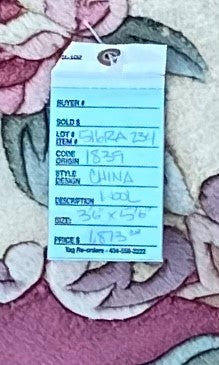 BUYER #
SOLD $
LOT # 516RA 234
ITEM #
CODE 1839
ORIGIN
STYLE CHINA
DESIGN
DESCRIPTION WOOL
SIZE: 3'6" x 5'6"
PRICE $ 1,873
Tag Re-orders - 404-558-2222